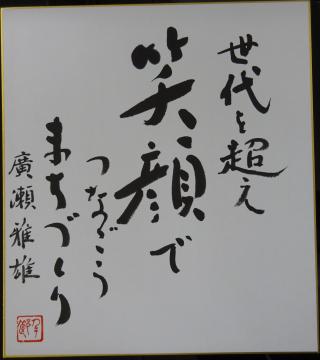 世代を超え
笑顔で
つなごう
まちづくり
廣瀬雅雄